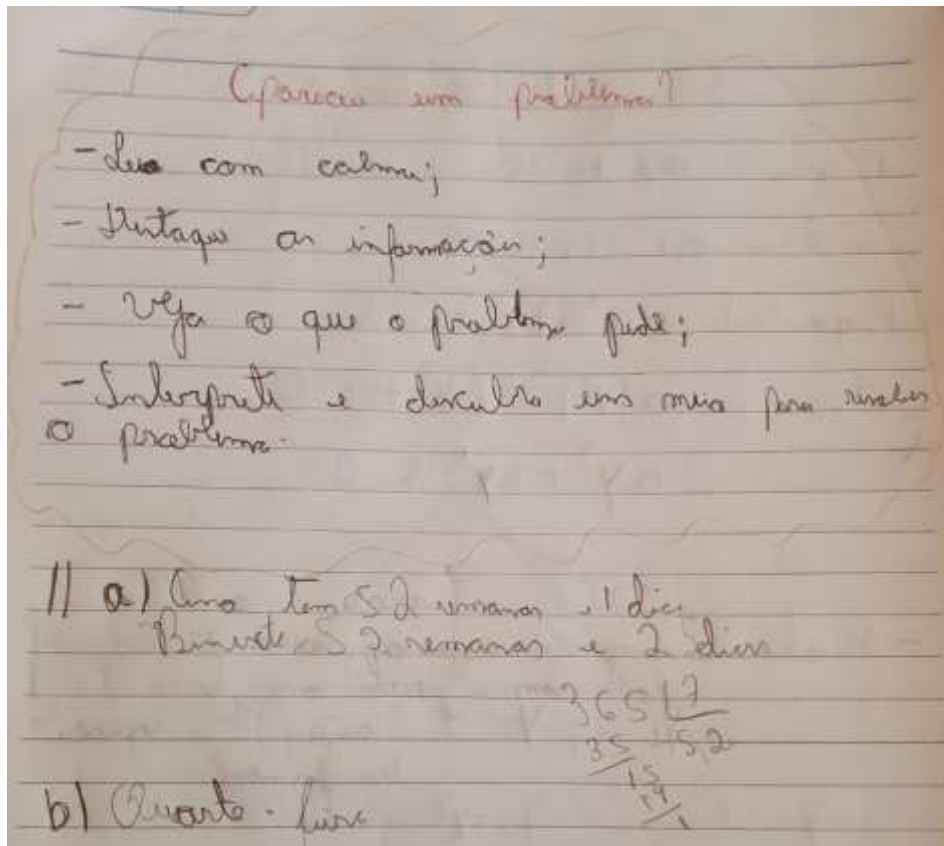 Apareceu um problema?
- Leia com calma;
- Destaque as informações;
- Veja o que o problema pede;
- Interprete e descubra um meio para resolver
o problema.
11 a) Ano tem 52 semanas e 1 dia
Bissexto 52 semanas e 2 dias
365 7
35 52
15
14
1
b) Quarta-feira